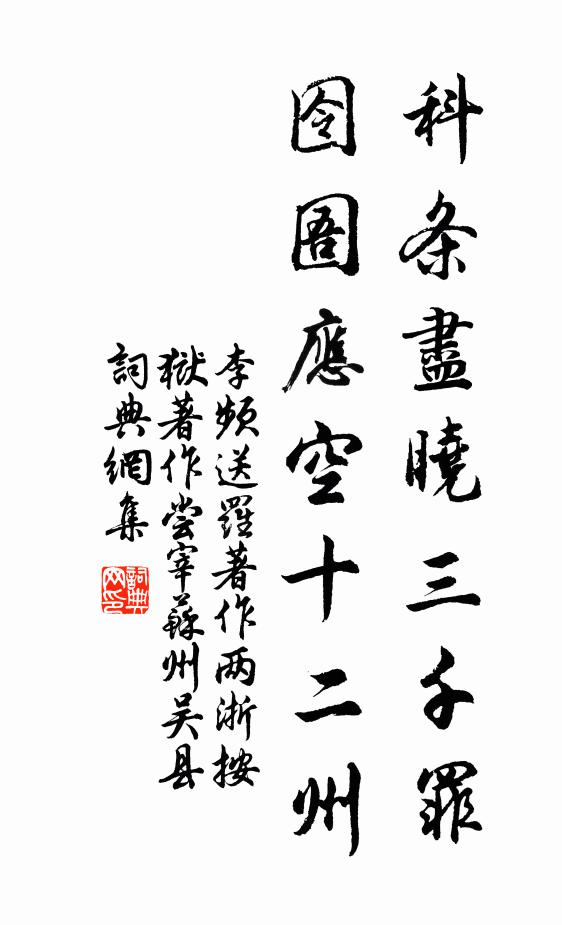 科条盡曉三千罪
囹圄應空十二州
李频送羅著作两浙按
獄著作尝宰蘇州吴县
詞典網集
詞典
网印